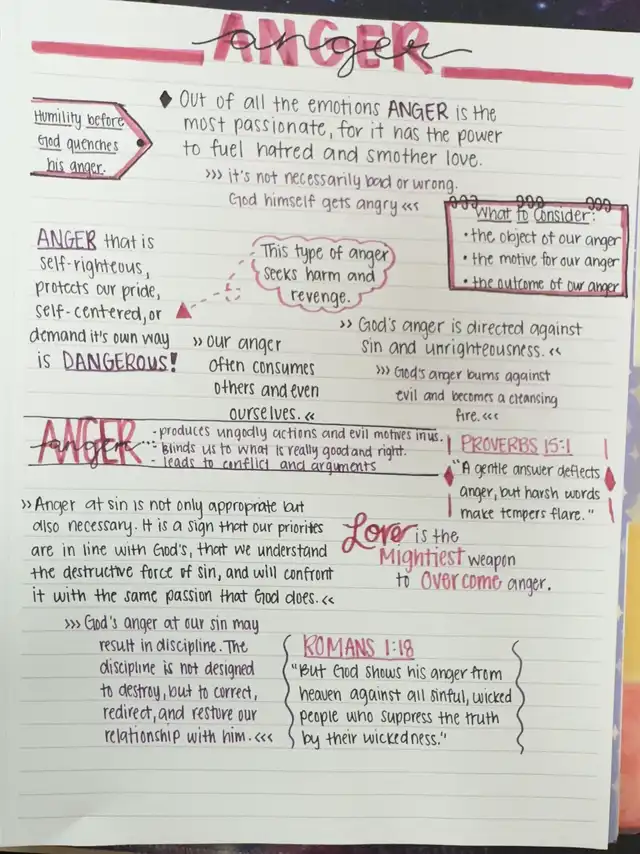 ANGER
anger
Humility before
God quenches
his anger.
♦ Out of all the emotions ANGER is the
most passionate, for it has the power
to fuel hatred and smother love.
>>> it's not necessarily bad or wrong.
God himself gets angry <<<
What to Consider:
• the object of our anger
• the motive for our anger
• the outcome of our anger
ANGER that is
self-righteous,
protects our pride,
self-centered, or
demand it's own way
is DANGEROUS!
This type of anger
seeks harm and
revenge.
>> our anger
often consumes
others and even
ourselves. <<
>> God's anger is directed against
sin and unrighteousness. <<
>>> God's anger burns against
evil and becomes a cleansing
fire. <<<
ANGER
anger
- produces ungodly actions and evil motives in us.
- blinds us to what is really good and right.
- leads to conflict and arguments
PROVERBS 15:1
"A gentle answer deflects
anger, but harsh words
make tempers flare."
>> Anger at sin is not only appropriate but
also necessary. It is a sign that our priorites
are in line with God's, that we understand
the destructive force of sin, and will confront
it with the same passion that God does. <<
Love is the
Mightiest weapon
to Overcome anger.
>>> God's anger at our sin may
result in discipline. The
discipline is not designed
to destroy, but to correct,
redirect, and restore our
relationship with him. <<<
ROMANS 1:18
"But God shows his anger from
heaven against all sinful, wicked
people who suppress the truth
by their wickedness."